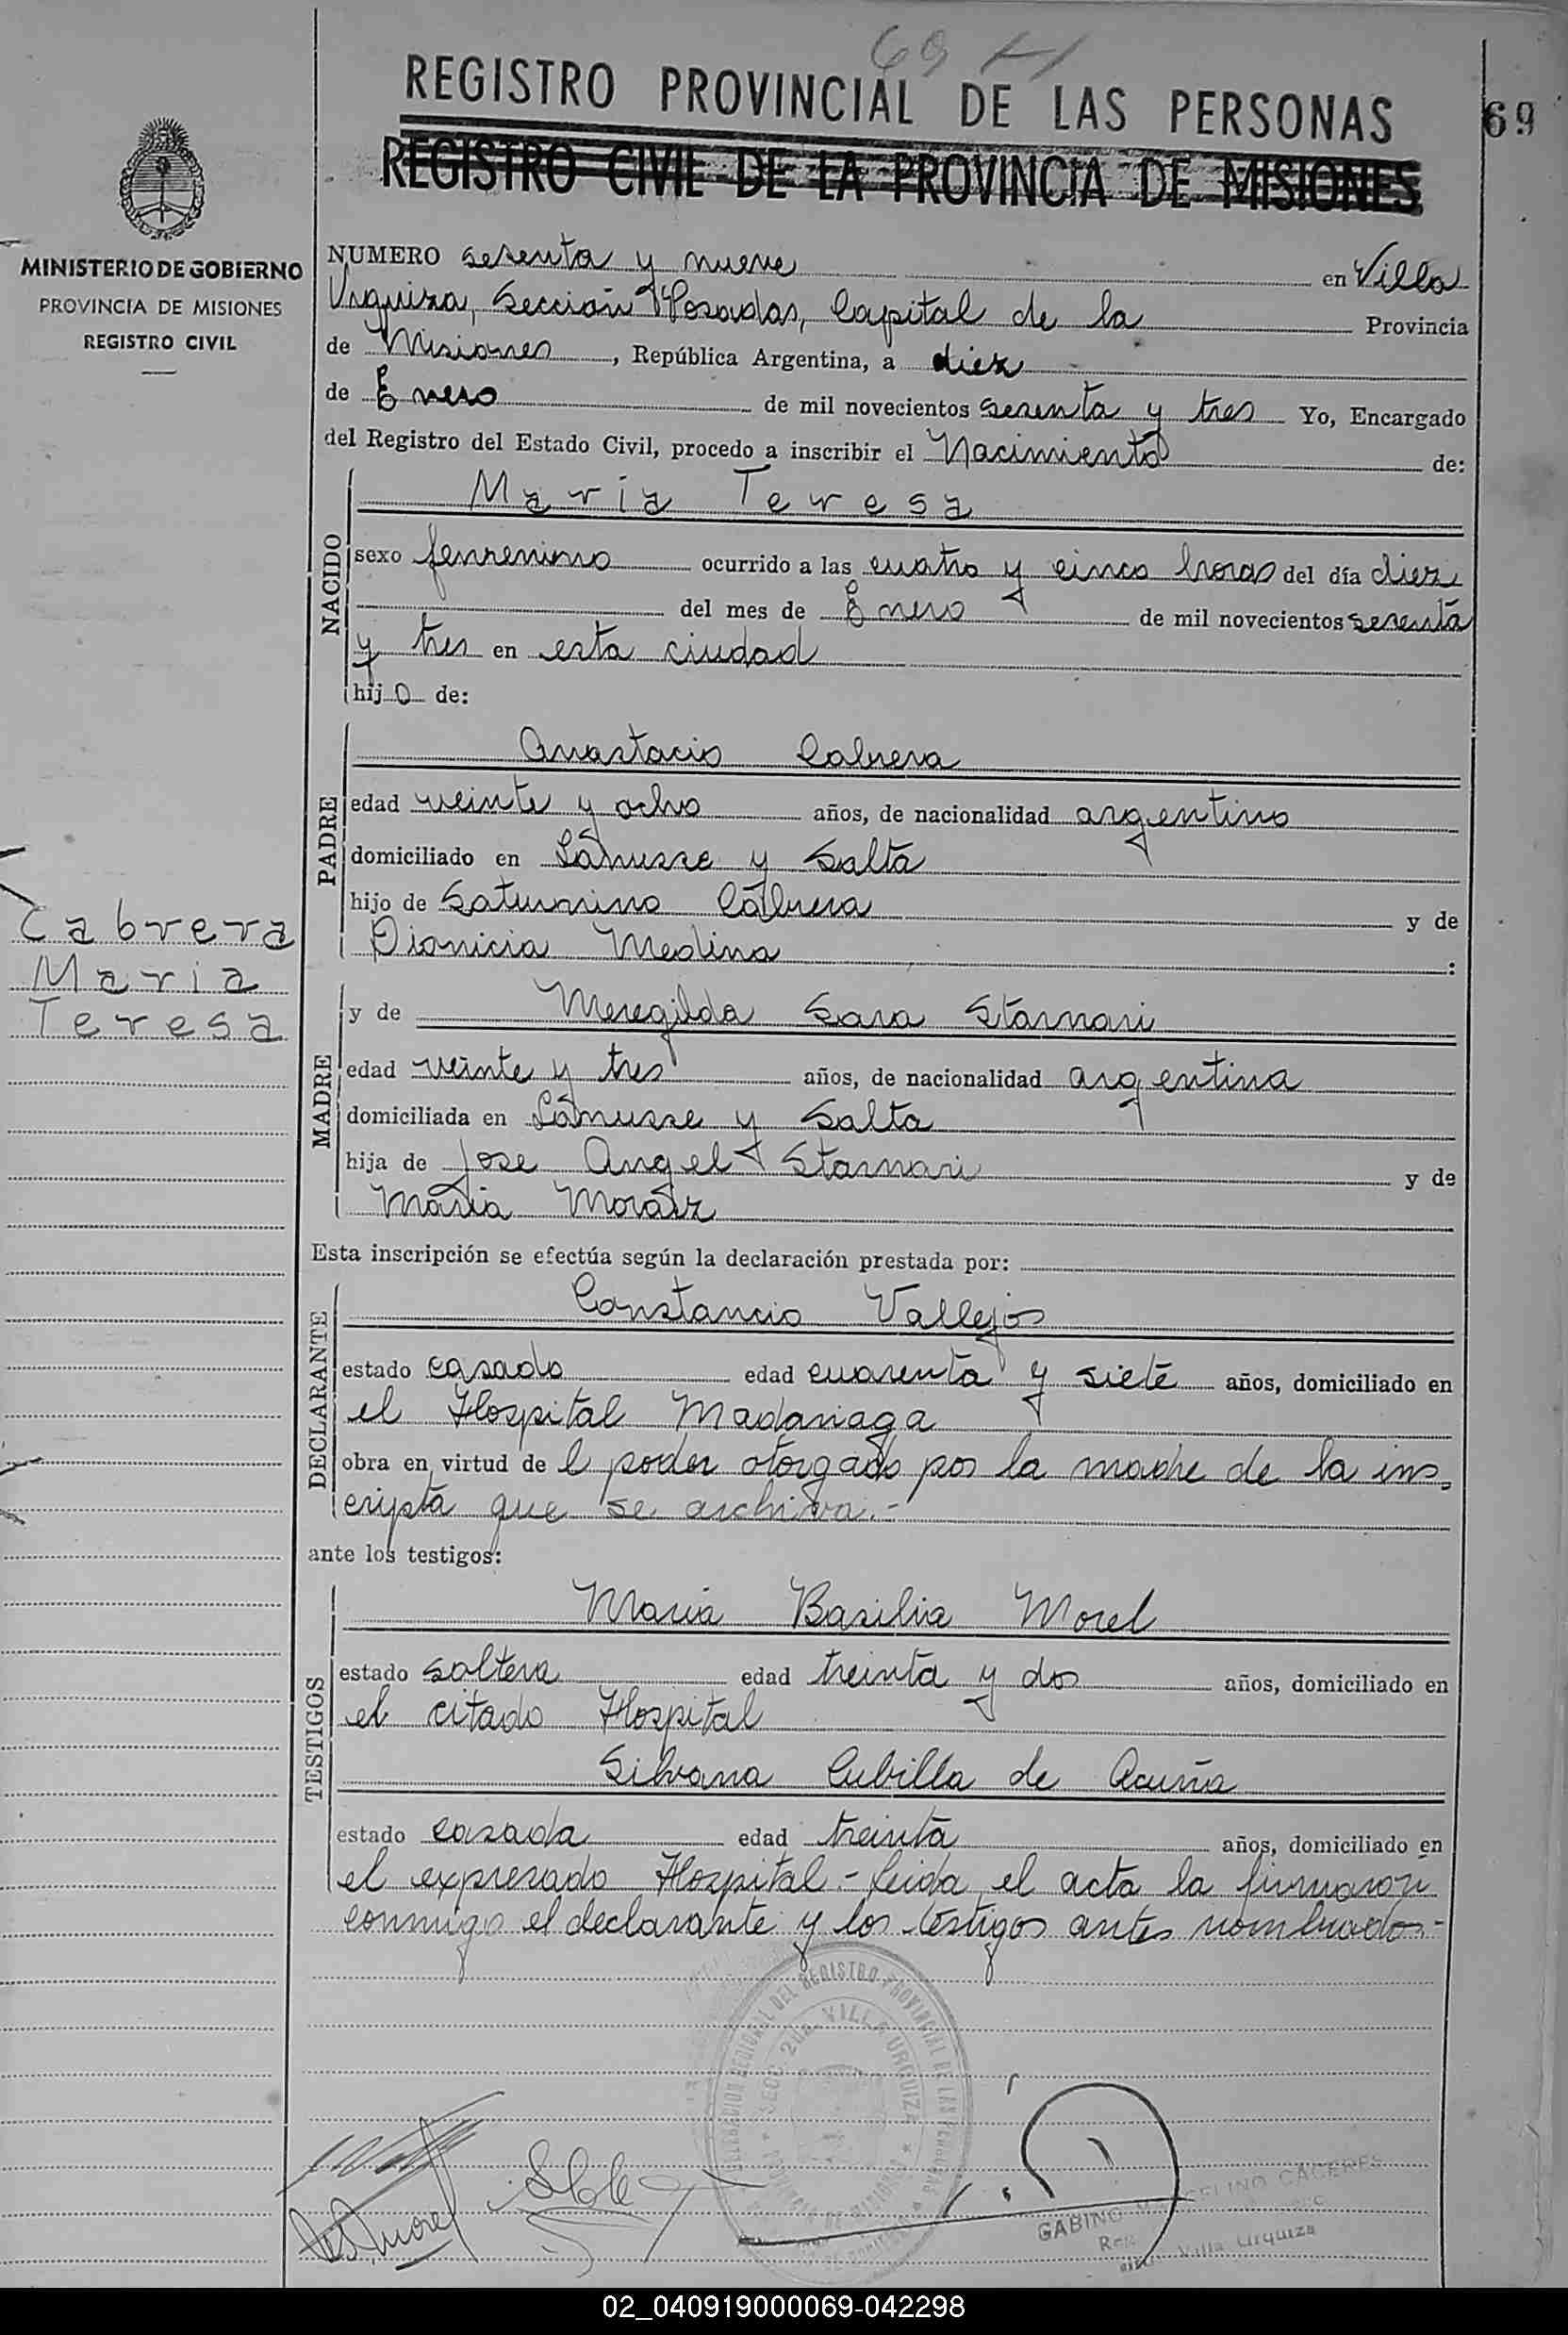 69
REGISTRO PROVINCIAL DE LAS PERSONAS
69
REGISTRO CIVIL DE LA PROVINCIA DE MISIONES
MINISTERIO DE GOBIERNO
PROVINCIA DE MISIONES
REGISTRO CIVIL
NUMERO sesenta y nueve en Villa
Urquiza, Sección Posadas, Capital de la Provincia
de Misiones, República Argentina, a diez
de Enero de mil novecientos sesenta y tres Yo, Encargado
del Registro del Estado Civil, procedo a inscribir el Nacimiento de:
NACIDO
María Teresa
sexo femenino ocurrido a las cuatro y cinco horas del día diez
del mes de Enero de mil novecientos sesenta
y tres en esta ciudad
hijo de:
PADRE
Anastacio Cabrera
edad veinte y ocho años, de nacionalidad argentino
domiciliado en Lanusse y Salta
hijo de Saturnino Cabrera y de
Dionicia Medina
Cabrera
Maria
Teresa
MADRE
y de Meregilda Sara Starnari
edad veinte y tres años, de nacionalidad argentina
domiciliada en Lanusse y Salta
hija de Jose Angel Starnari y de
Maria Moraiz
Esta inscripción se efectúa según la declaración prestada por:
DECLARANTE
Constancio Vallejos
estado casado edad cuarenta y siete años, domiciliado en
el Hospital Madariaga
obra en virtud del poder otorgado por la madre de la ins-
cripta que se archiva.-
ante los testigos:
TESTIGOS
Maria Basilia Morel
estado soltera edad treinta y dos años, domiciliado en
el citado Hospital
Silvana Cubilla de Acuña
estado casada edad treinta años, domiciliado en
el expresado Hospital.- Leida el acta la firmaron
conmigo el declarante y los testigos antes nombrados.-
DELEGACION REGIONAL DEL REGISTRO PROVINCIAL DE LAS PERSONAS
SECC. 2da. VILLA URQUIZA
PROVINCIA DE MISIONES
GABINO MARCELINO CACERES
Villa Urquiza
02_040919000069-042298